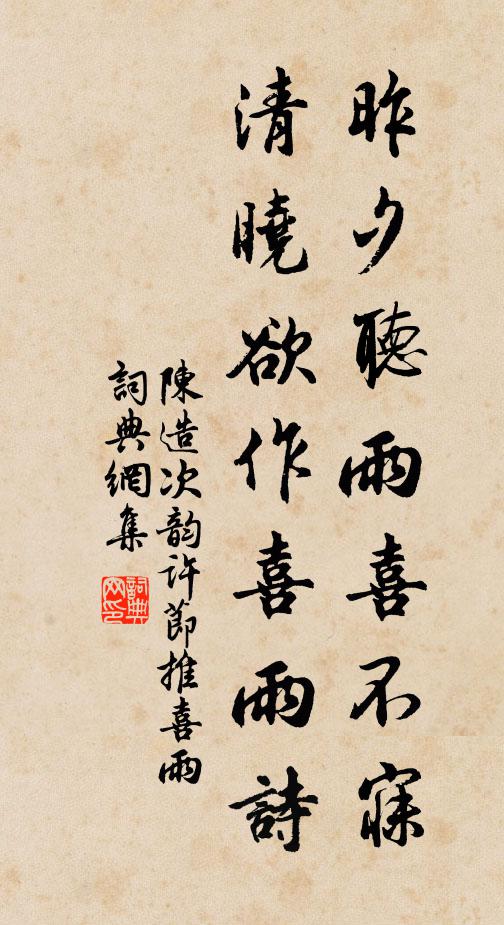 昨夕聽雨喜不寐
清曉欲作喜雨詩
陳造次韵許節推喜雨
詞典網集
詞典
网印